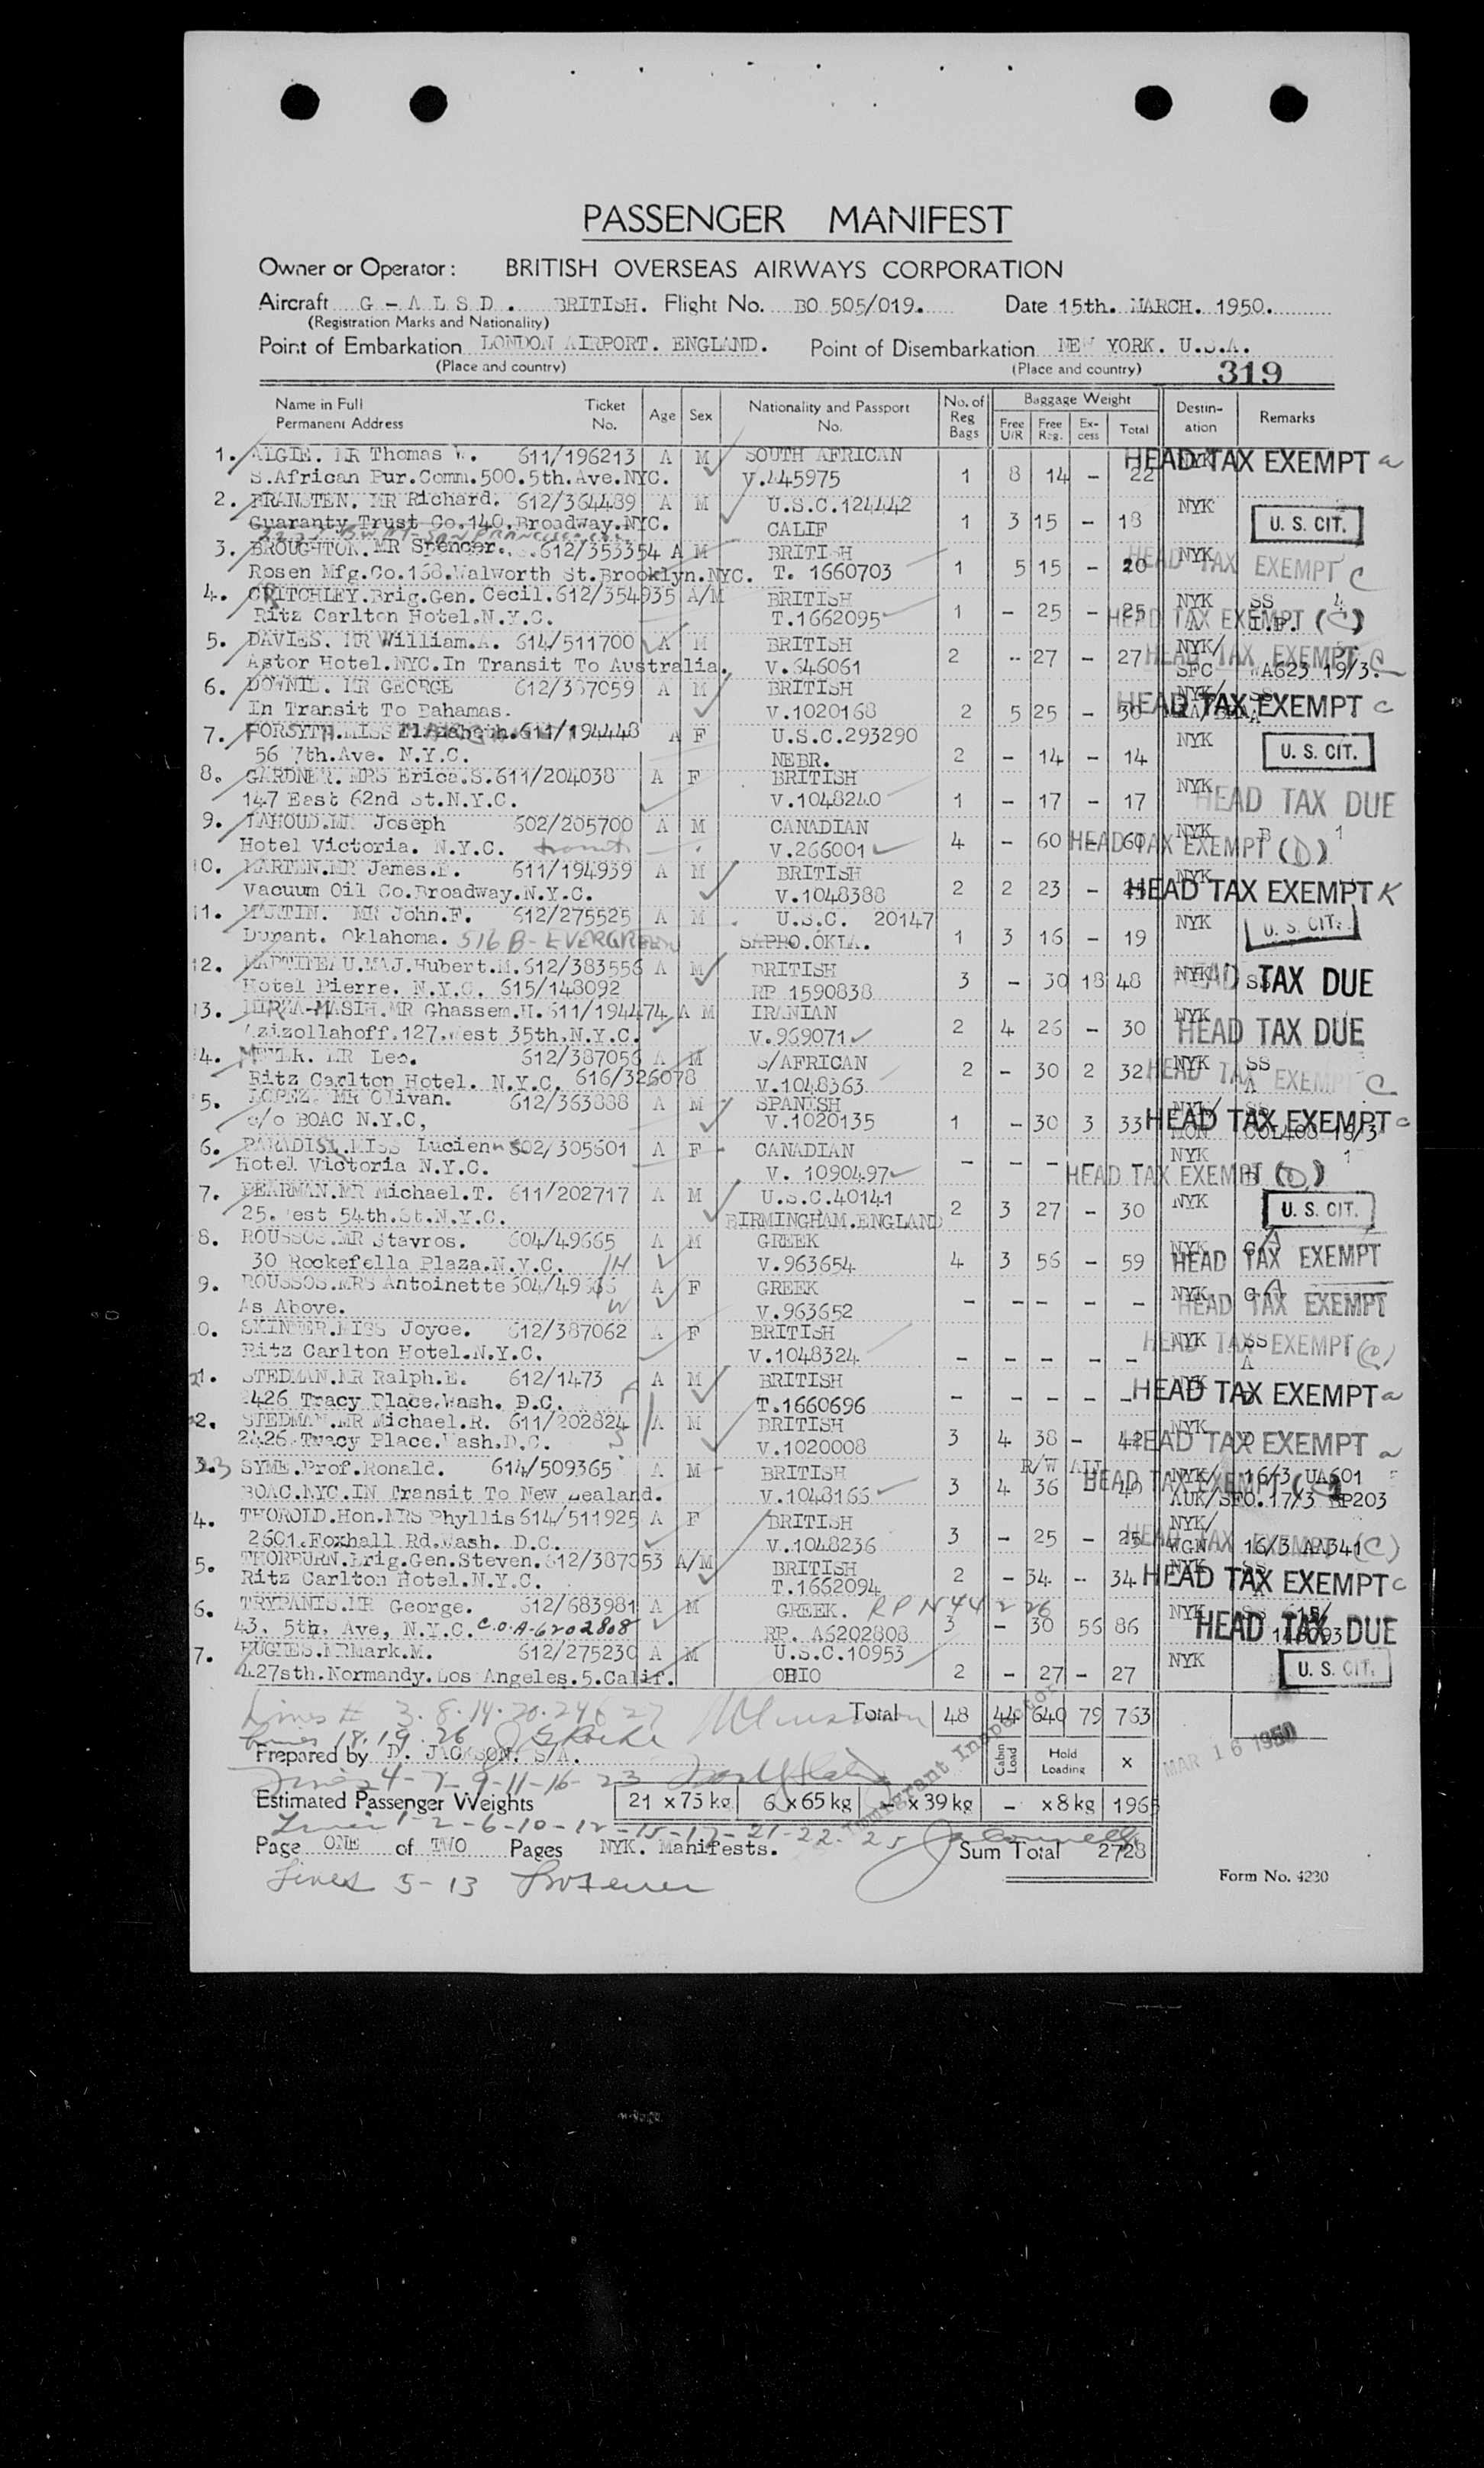 PASSENGER MANIFEST
Owner or Operator: BRITISH OVERSEAS AIRWAYS CORPORATION
Aircraft G-ALSD. BRITISH. Flight No. BO 505/019. Date 15th. MARCH. 1950.
(Registration Marks and Nationality)
Point of Embarkation LONDON AIRPORT. ENGLAND. Point of Disembarkation NEW YORK. U.S.A.
(Place and country) (Place and country) 319
Name in Full Permanent Address Ticket No. Age Sex Nationality and Passport No. No. of Reg Bags Baggage Weight Free U/R Free Reg. Excess Total Destination Remarks
1. ALGIE. MR Thomas W. 611/196213 A M SOUTH AFRICAN NYK HEAD TAX EXEMPT a
S.African Pur.Comm.500.5th.Ave.NYC. V.445975 1 8 14 - 22
2. BRANSTEN. MR Richard. 612/364489 A M U.S.C.124442 NYK
Guaranty Trust Co.140.Broadway.NYC. CALIF 1 3 15 - 18 U. S. CIT.
3. BROUGHTON.MR Spencer. 612/353354 A M BRITISH NYK
Rosen Mfg.Co.168.Walworth St.Brooklyn.NYC. T. 1660703 1 5 15 - 20 HEAD TAX EXEMPT C
4. CRITCHLEY.Brig.Gen. Cecil.612/354935 A/M BRITISH NYK SS 4
Ritz Carlton Hotel.N.Y.C. T.1662095 1 - 25 - 25 HEAD TAX EXEMPT (C)
5. DAVIES. MR William.A. 614/511700 A M BRITISH NYK/
Astor Hotel.NYC.In Transit To Australia. V.646061 2 -- 27 - 27 HEAD TAX EXEMPT C SFC 19/3.
6. DOWNIE. MR GEORGE 612/387059 A M BRITISH NYK/ SS
In Transit To Bahamas. V.1020168 2 5 25 - 30 HEAD TAX EXEMPT C
7. FORSYTH.MISS Elizabeth.611/194448 A F U.S.C.293290 NYK
56 7th.Ave. N.Y.C. NEBR. 2 - 14 - 14 U. S. CIT.
8. GARDNER. MRS Erica.S.611/204038 A F BRITISH NYK
147 East 62nd St.N.Y.C. V.1048240 1 - 17 - 17 HEAD TAX DUE
9. LAHOUD.MR Joseph 602/205700 A M CANADIAN NYK B 1
Hotel Victoria. N.Y.C. transit V.266001 4 - 60 - 60 HEAD TAX EXEMPT (D)
10. MARTEN.MR James. 611/194939 A M BRITISH NYK
Vacuum Oil Co.Broadway.N.Y.C. V.1048388 2 2 23 - 25 HEAD TAX EXEMPT K
11. MARTIN. MR John.F. 612/275525 A M U.S.C. 20147 NYK
Durant. Oklahoma. 516 B- EVERGREEN SAPRO.OKLA. 1 3 16 - 19 U. S. CIT.
12. MARTINEAU.MAJ.Hubert.M.612/383556 A M BRITISH
Hotel Pierre. N.Y.C. 615/148092 RP 1590838 3 - 30 18 48 NYK SS HEAD TAX DUE
13. MIRZA-MASIH.MR Ghassem.H.611/194474 A M IRANIAN NYK
Azizollahoff.127.West 35th.N.Y.C. V.969071 2 4 26 - 30 HEAD TAX DUE
14. MEYER. MR Leo. 612/387056 A M S/AFRICAN NYK SS
Ritz Carlton Hotel. N.Y.C. 616/326078 V.1048363 2 - 30 2 32 HEAD TAX EXEMPT C
5. LOPEZ. MR Olivan. 612/363888 A M SPANISH NYK/ SS
c/o BOAC N.Y.C, V.1020135 1 - 30 3 33 HEAD TAX EXEMPT C
6. PARADISI.MISS Lucienne 602/305601 A F CANADIAN NYK 1
Hotel Victoria N.Y.C. V. 1090497 - - - HEAD TAX EXEMPT (D)
7. PEARMAN.MR Michael.T. 611/202717 A M U.S.C.40141 NYK
25.West 54th.St.N.Y.C. BIRMINGHAM.ENGLAND 2 3 27 - 30 U. S. CIT.
8. ROUSSOS.MR Stavros. 604/49665 A M GREEK NYK G/A
30 Rockefella Plaza.N.Y.C. 1H V.963654 4 3 56 - 59 HEAD TAX EXEMPT
9. ROUSSOS.MRS Antoinette 604/49666 A F GREEK NYK
As Above. W V.963652 - -- - - HEAD TAX EXEMPT
0. SKINNER.MISS Joyce. 612/387062 A F BRITISH NYK SS HEAD TAX EXEMPT (C)
Ritz Carlton Hotel.N.Y.C. V.1048324 - - - - - A
21. STEDMAN.MR Ralph.E. 612/1473 A M BRITISH
2426 Tracy Place.Wash. D.C. T.1660696 - - - - - HEAD TAX EXEMPT a
22. STEDMAN.MR Michael.R. 611/202824 A M BRITISH NYK
2426.Tracy Place.Wash.D.C. V.1020008 3 4 38 - 42 HEAD TAX EXEMPT a
23 SYME.Prof.Ronald. 614/509365 A M BRITISH R/W NYK/ 16/3 UA601
BOAC.NYC.IN Transit To New Zealand. V.1048166 3 4 36 40 HEAD TAX EXEMPT AUK/SFO.17/3 BP203
4. THOROLD.Hon.MRS Phyllis 614/511925 A F BRITISH NYK/
2601.Foxhall Rd.Wash. D.C. V.1048236 3 - 25 - 25 HEAD TAX EXEMPT (C) WGN 16/3 AA341
5. THORBURN.Brig.Gen.Steven.612/387053 A/M BRITISH NYK SS
Ritz Carlton Hotel.N.Y.C. T.1662094 2 - 34 - 34 HEAD TAX EXEMPT C
6. TRYPANIS.MR George. 612/683981 A M GREEK. RPN 44226 NYK
43. 5th, Ave, N.Y.C. C.O.A-6202808 RP. A6202808 3 - 30 56 86 HEAD TAX DUE
7. HUGHES.MRMark.M. 612/275230 A M U.S.C.10953 NYK
427sth.Normandy.Los Angeles.5.Calif. OHIO 2 - 27 - 27 U. S. CIT.
Lines # 3.8.14.20.24 & 27 Total 48 44 640 79 763
Lines 18.19.26
Prepared by D. JACKSON. S/A. Cabin Load Hold Loading X MAR 16 1950
Lines 4-7-9-11-16-23 Immigrant Inspector
Estimated Passenger Weights 21 x75kg 6 x65kg - x39kg - x8kg 1965
Lines 1-2-6-10-12-15-17-21-22-25
Page ONE of TWO Pages NYK. Manifests. Sum Total 2728
Lines 5-13
Form No. 4230